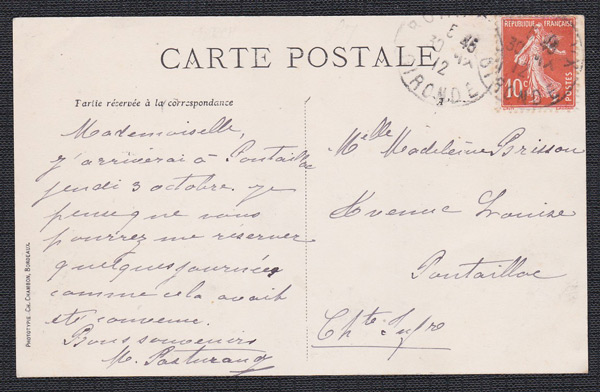 CARTE POSTALE
RÉPUBLIQUE FRANÇAISE
10c
POSTES
E
45
30 IX
12
GIRONDE
Partie réservée à la correspondance
Mademoiselle,
j'arriverai à Pontaillac
jeudi 3 octobre. Je
pense que vous
pourrez me réserver
quelques journées
comme cela avait
été convenu.
Bons souvenirs
Melle Madeleine Brisson
Avenue Louise
Pontaillac
Chte Infre
PHOTOTYPIE CH. CHAMBON, BORDEAUX